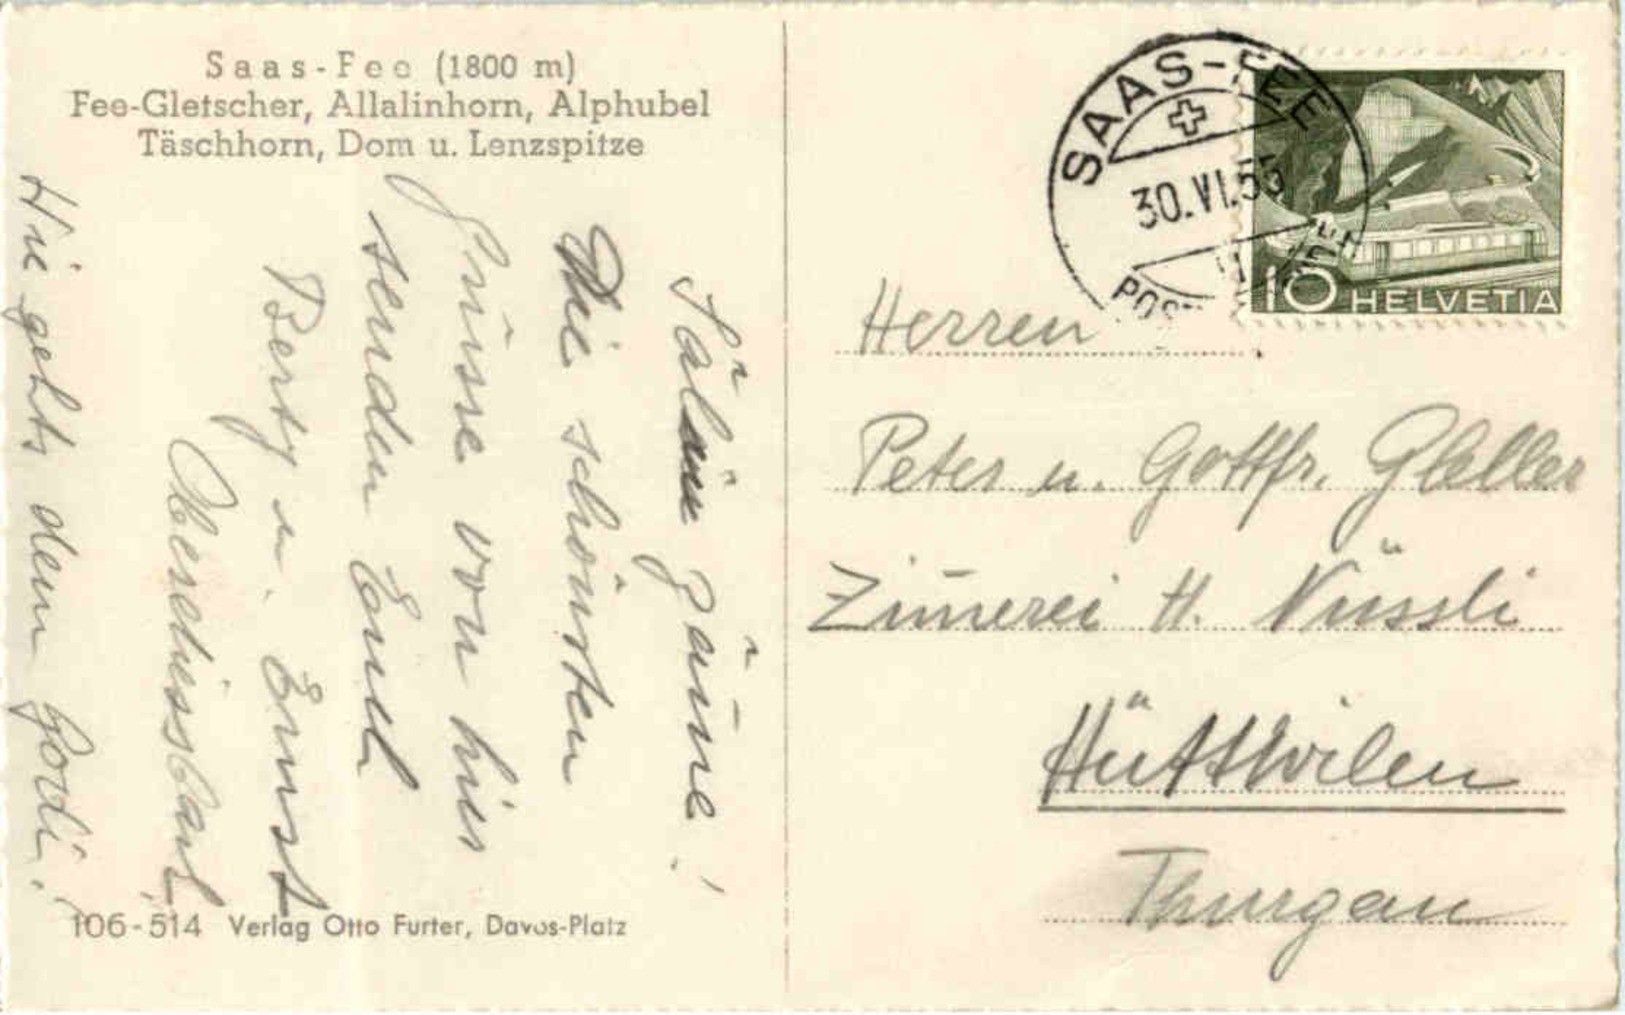 Saas-Fee (1800 m)
Fee-Gletscher, Allalinhorn, Alphubel
Täschhorn, Dom u. Lenzspitze
Sälüü zäme!
Die schönsten
Grüsse von hier
senden Euch
Berty u. Ernst
Wie gehts dem Godi?
106-514 Verlag Otto Furter, Davos-Platz
SAAS-FEE
30.VI.59
10 HELVETIA
Herren
Peter u. Gottfr.
Zim̄erei H. Nüssli
Hüttwilen
Thurgau